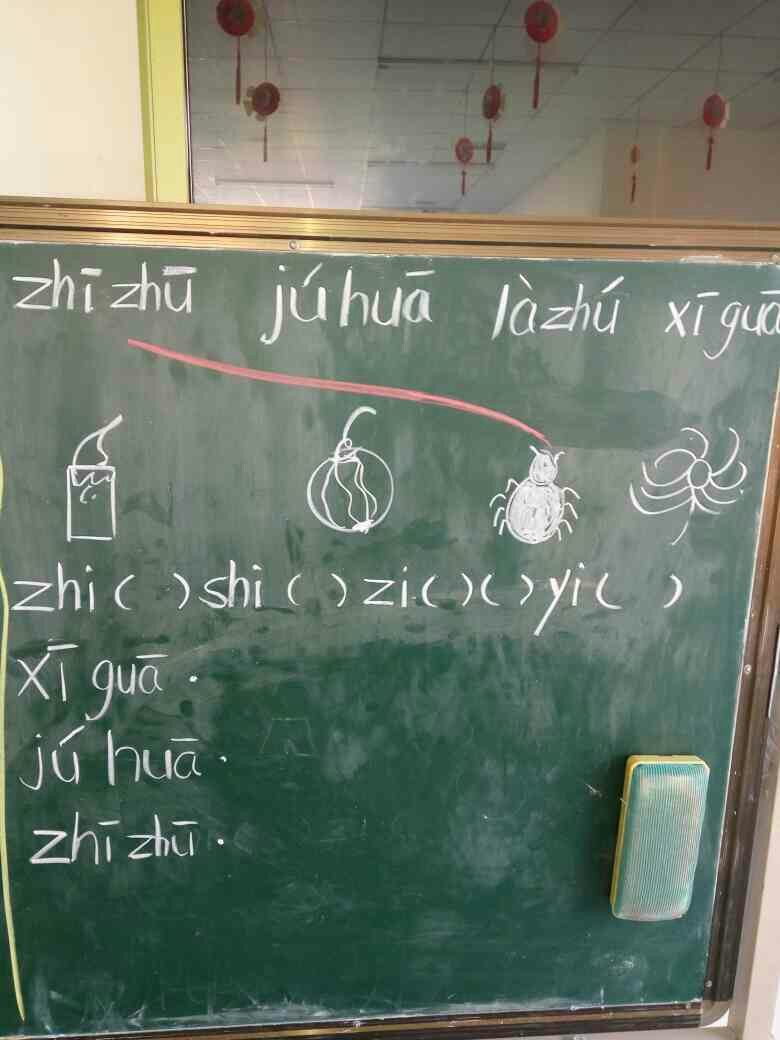 zhī zhū jú huā là zhú xī guā
zhi ( ) shi ( ) zi ( ) ( ) yi ( )
xī guā .
jú huā .
zhī zhū .